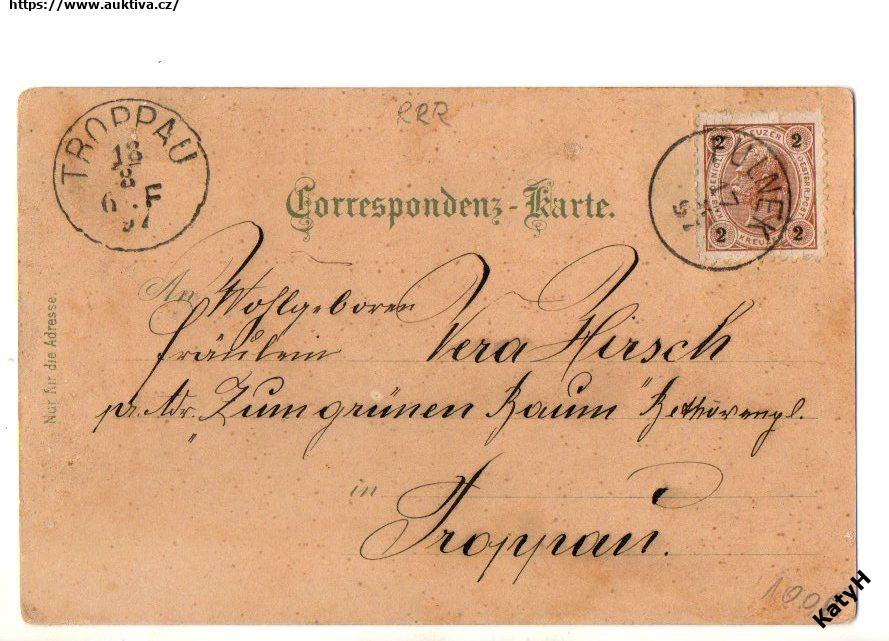 https://www.auktiva.cz/
RRR
TROPPAU
18
8
6 . F
97
Correspondenz-Karte.
2 KREUZER 2
OESTERR. POST
2 KREUZER 2
An Wohlgeboren
Fräulein Vera Hirsch
pr. Adr. „Zum grünen Baum"
in Troppau.
Nur für die Adresse.
KatyH